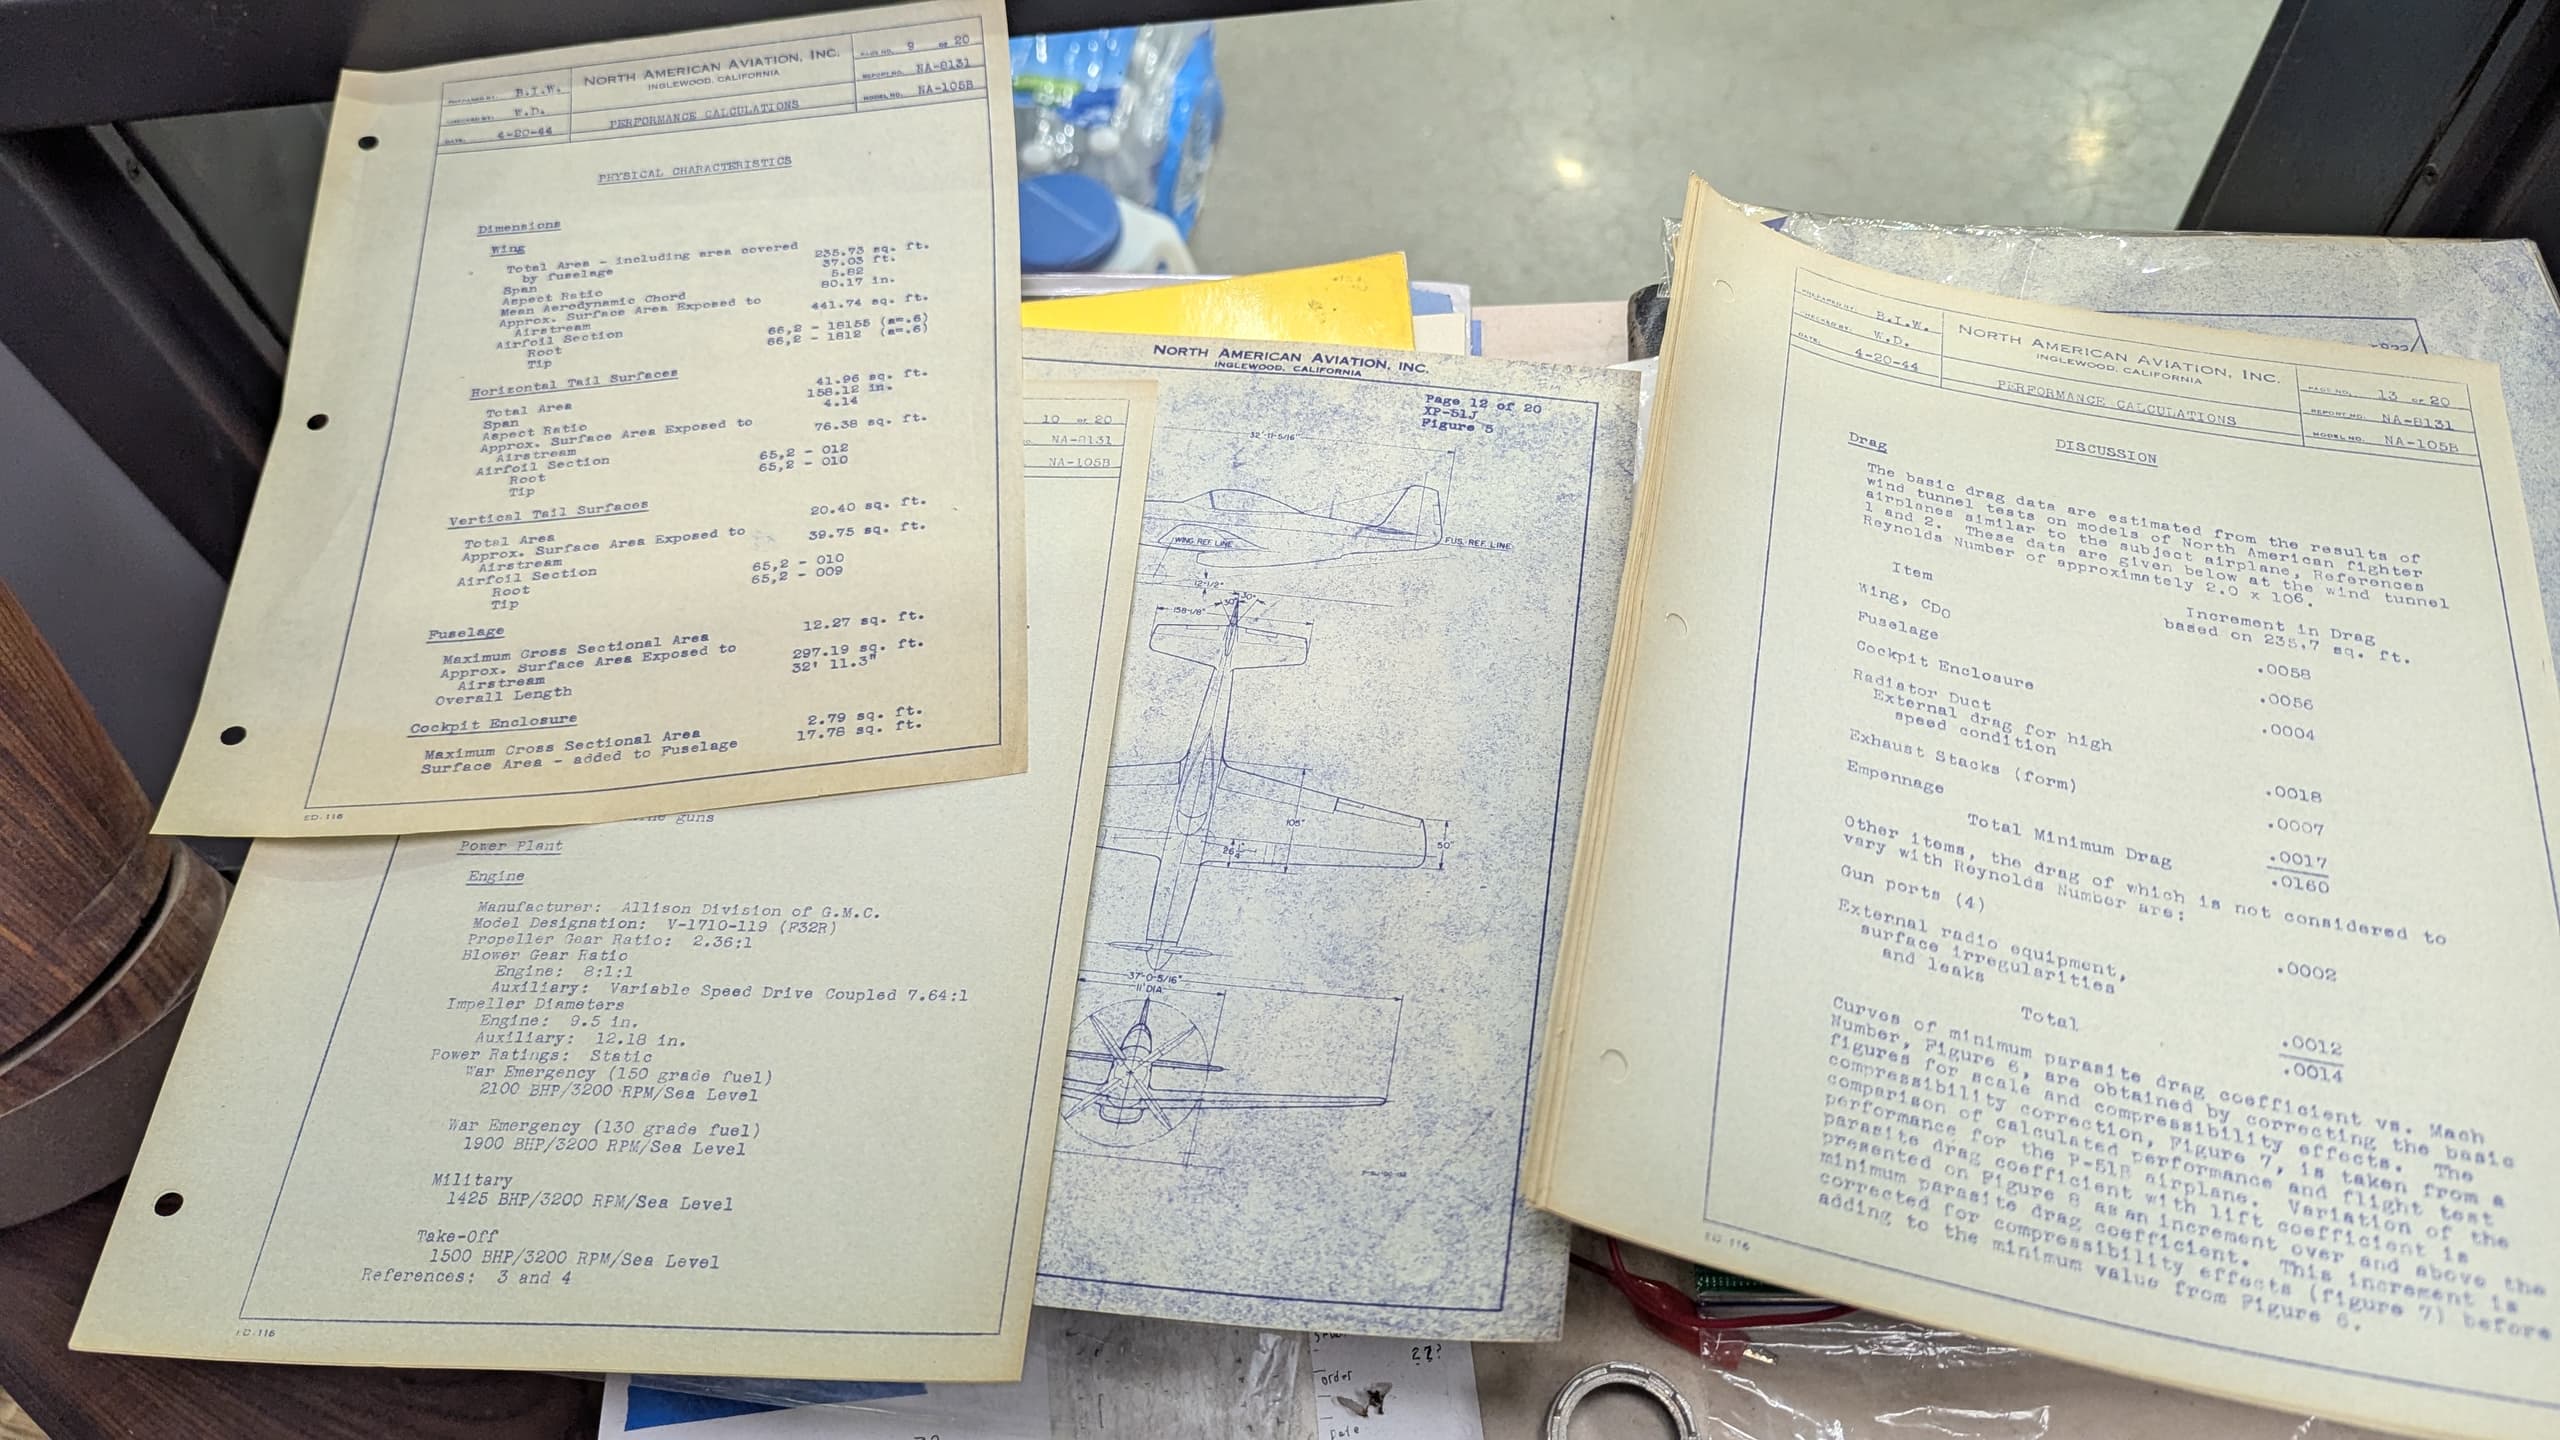 PREPARED BY: B.I.W.
CHECKED BY: W.D.
DATE: 4-20-44
NORTH AMERICAN AVIATION, INC.
INGLEWOOD, CALIFORNIA
PERFORMANCE CALCULATIONS
PAGE NO. 9 OF 20
REPORT NO. NA-8131
MODEL NO. NA-105B
PHYSICAL CHARACTERISTICS
Dimensions
Wing
Total Area - including area covered
by fuselage 235.73 sq. ft.
Span 37.03 ft.
Aspect Ratio 5.82
Mean Aerodynamic Chord 80.17 in.
Approx. Surface Area Exposed to
Airstream 441.74 sq. ft.
Airfoil Section
Root 66,2 - 18155 (a=.6)
Tip 66,2 - 1812 (a=.6)
Horizontal Tail Surfaces
Total Area 41.96 sq. ft.
Span 158.12 in.
Aspect Ratio 4.14
Approx. Surface Area Exposed to
Airstream 76.38 sq. ft.
Airfoil Section
Root 65,2 - 012
Tip 65,2 - 010
Vertical Tail Surfaces
Total Area 20.40 sq. ft.
Approx. Surface Area Exposed to
Airstream 39.75 sq. ft.
Airfoil Section
Root 65,2 - 010
Tip 65,2 - 009
Fuselage
Maximum Cross Sectional Area 12.27 sq. ft.
Approx. Surface Area Exposed to
Airstream 297.19 sq. ft.
Overall Length 32' 11.3"
Cockpit Enclosure
Maximum Cross Sectional Area 2.79 sq. ft.
Surface Area - added to Fuselage 17.78 sq. ft.
ED. 116
10 OF 20
NA-8131
NA-105B
guns
Power Plant
Engine
Manufacturer: Allison Division of G.M.C.
Model Designation: V-1710-119 (F32R)
Propeller Gear Ratio: 2.36:1
Blower Gear Ratio
Engine: 8:1:1
Auxiliary: Variable Speed Drive Coupled 7.64:1
Impeller Diameters
Engine: 9.5 in.
Auxiliary: 12.18 in.
Power Ratings: Static
War Emergency (150 grade fuel)
2100 BHP/3200 RPM/Sea Level
War Emergency (130 grade fuel)
1900 BHP/3200 RPM/Sea Level
Military
1425 BHP/3200 RPM/Sea Level
Take-Off
1500 BHP/3200 RPM/Sea Level
References: 3 and 4
ED. 116
NORTH AMERICAN AVIATION, INC.
INGLEWOOD, CALIFORNIA
Page 12 of 20
XP-51J
Figure 5
32'-11-5/16"
WING REF. LINE
FUS. REF. LINE
12-1/2"
30° 30°
158-1/8"
105"
50"
37'-0-5/16"
11' DIA.
PREPARED BY: B.I.W.
CHECKED BY: W.D.
DATE: 4-20-44
NORTH AMERICAN AVIATION, INC.
INGLEWOOD, CALIFORNIA
PERFORMANCE CALCULATIONS
PAGE NO. 13 OF 20
REPORT NO. NA-8131
MODEL NO. NA-105B
DISCUSSION
Drag
The basic drag data are estimated from the results of
wind tunnel tests on models of North American fighter
airplanes similar to the subject airplane, References
1 and 2. These data are given below at the wind tunnel
Reynolds Number of approximately 2.0 x 106.
Item
Increment in Drag
based on 235.7 sq. ft.
Wing, CDO .0058
Fuselage .0056
Cockpit Enclosure .0004
Radiator Duct
External drag for high
speed condition .0018
Exhaust Stacks (form) .0007
Empennage .0017
Total Minimum Drag .0160
Other items, the drag of which is not considered to
vary with Reynolds Number are:
Gun ports (4) .0002
External radio equipment,
surface irregularities
and leaks .0012
Total .0014
Curves of minimum parasite drag coefficient vs. Mach
Number, Figure 6, are obtained by correcting the basic
figures for scale and compressibility effects. The
compressibility correction, Figure 7, is taken from a
comparison of calculated performance and flight test
performance for the P-51B airplane. Variation of the
parasite drag coefficient with lift coefficient is
presented on Figure 8 as an increment over and above the
minimum parasite drag coefficient. This increment is
corrected for compressibility effects (figure 7) before
adding to the minimum value from Figure 6.
ED. 116
22?
order
Date